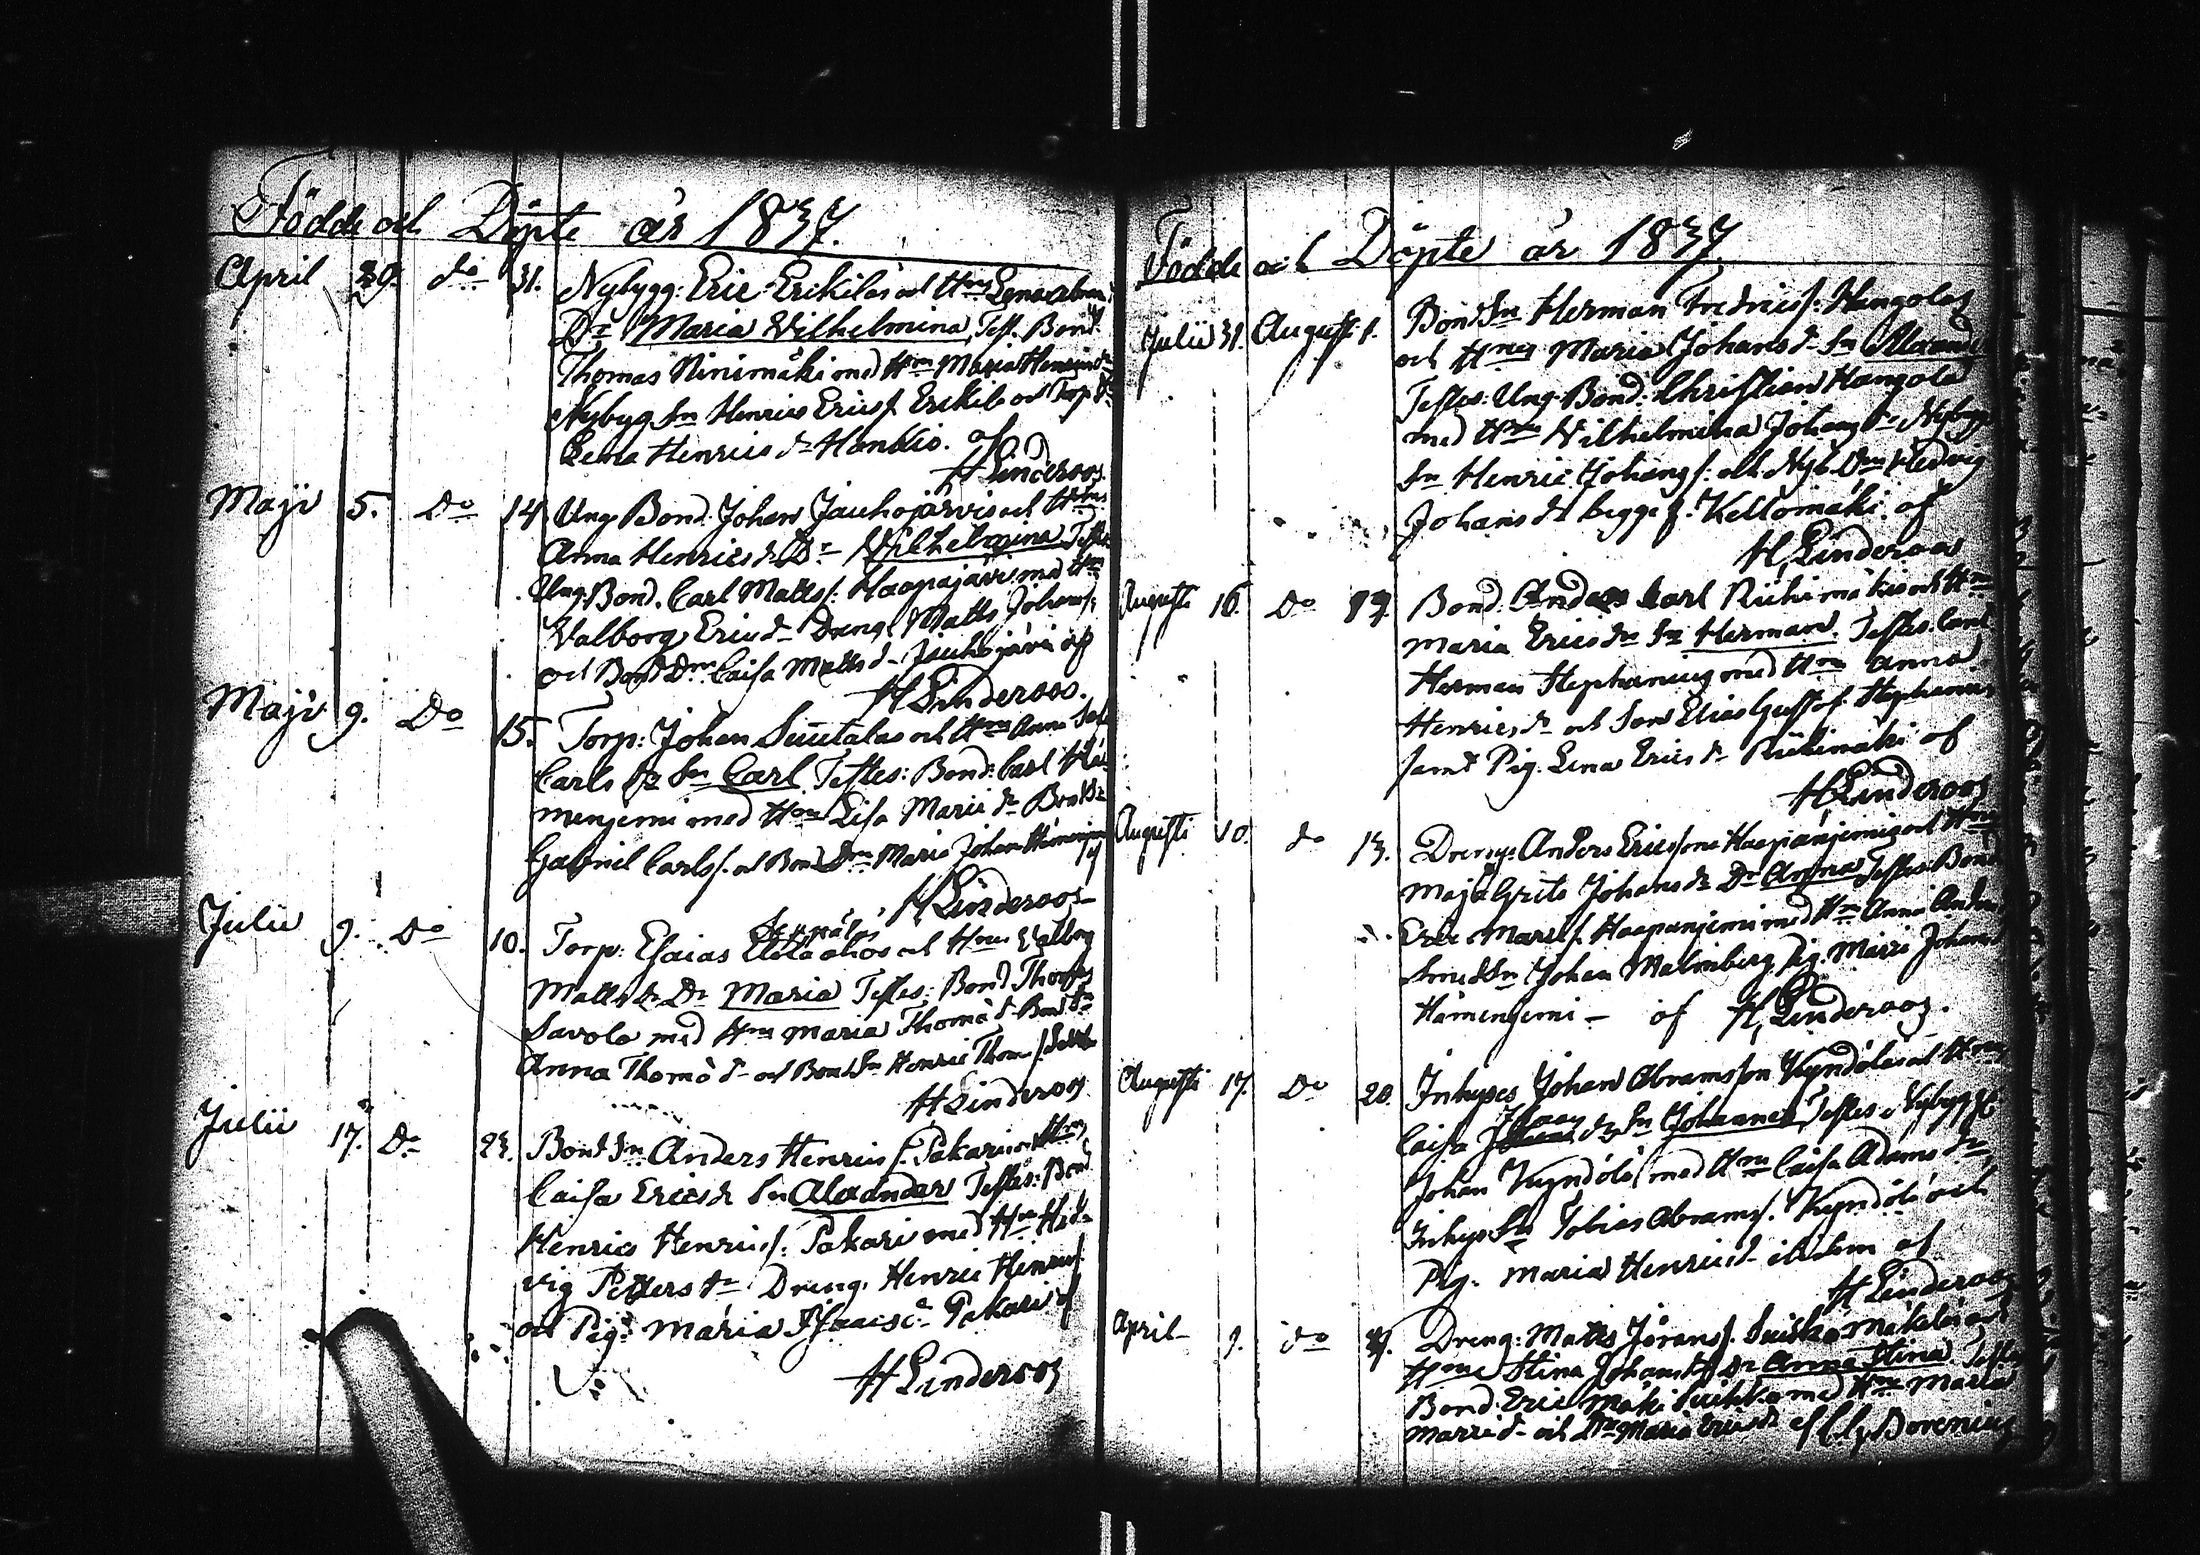 Födde och Döpte år 1837.
April 29. do 31. Nybygg: Eric Erckiläs och Hms Lena Abra
Dr Maria Wilhelmina, Test. Bond.
Thomas Ninimäki med Hm Maria Henricsdr
Nybyg Sn Henrics Ericss. Erckilä och Torp. dr
Lena Henrics dr Hankis. af
H Linderoos
Maji 5. Do 14 Ung Bond. Johan Jauhojärvis och Hms
Anna Henrics dr Dr Wilhelmina Testes
Ung. Bond. Carl Matts s. Haapajärvi med Hm
Valborg Erics dr Dreng. Matts Johans s.
och Bond Drn Caisa Matts dr Jauhojärvi af
H Linderoos.
Maji 9. Do 15. Torp: Johan Suutalas och Hms Anna
Carls dr Sn Carl Testes: Bond. Carl Hä
menjemi med Hm Lisa Marie dr Bond Sn
Gabriel Carls s. och Bond Drn Maria Johans Hämenjemi af
H Linderoos
Julii 9. Do 10. Torp: Esaias Seppäläs och Hms Valborg
Matts dr Dr Maria Testes: Bond Thomas
Savola med Hm Maria Thomæ dr Bond Drn
Anna Thomæ dr och Bond Sn Henric Thom s.
H Linderoos
Julii 17. Do 23. Bond Sn Anders Henrics s. Pakaris och Hms
Caisa Erics dr Sn Alexander Testes: Bond
Henrics Henrics s. Pakari med Hm Hed-
vig Petters dr Dreng. Henric Henrics s.
och Pig: Maria Isaacs dr Pakari af
H Linderoos
Födde och Döpte år 1837.
Julii 31. Augusti Bond Sn Herman Fredrics s. Hangolas
och Hms Maria Johans dr Sn Alexander
Testes. Ung. Bond: Christian Hangola
med Hm Wilhelmina Johans dr Nybygg
Sn Henric Johans s. och Nyb. Drn Hedvig
Johans dr begge f. Kellomäki af
H Linderoos
Augusti 16. Do Bond: Anders Karl Riihimäkis och Hms
Maria Erics dr Sn Herman. Testes. Cant.
Herman Stephanius med Hm Anna
Henrics dr och Son Elias Gustaf Stephanius
samt Pig. Lena Erics dr Riihimäki af
H Linderoos
Augusti 10. do 13. Dreng: Anders Ericssons Haapanjemis och Hms
Maja Greta Johans dr Dr Anna Testes Bond
Eric Marci s. Haapanjemi med Hm Anna Anders
Smed Sn Johan Malmberg Pig. Maria Johans
Hämenjemi - af H Linderoos.
Augusti 17. Do 20. Inhyses Johan Abramsson Kyndöläs och Hms
Caisa Isaacs dr Sn Johannes Testes Nybygg:
Johan Kyndölä med Hm Caisa Adams dr
Inhys Sn Tobias Abrams s. Kyndölä och
Pig. Maria Henrics dr ibidem af
H Linderoos
April 9. do Dreng: Matts Jörans s. Suikkamäkiläs och
Hms Stina Johans dr Dr Anna Stina. Testes
Bond. Eric Mäki Suikka med Hm Maria
Marci dr och Drn Maria Erics dr af C G Borenius